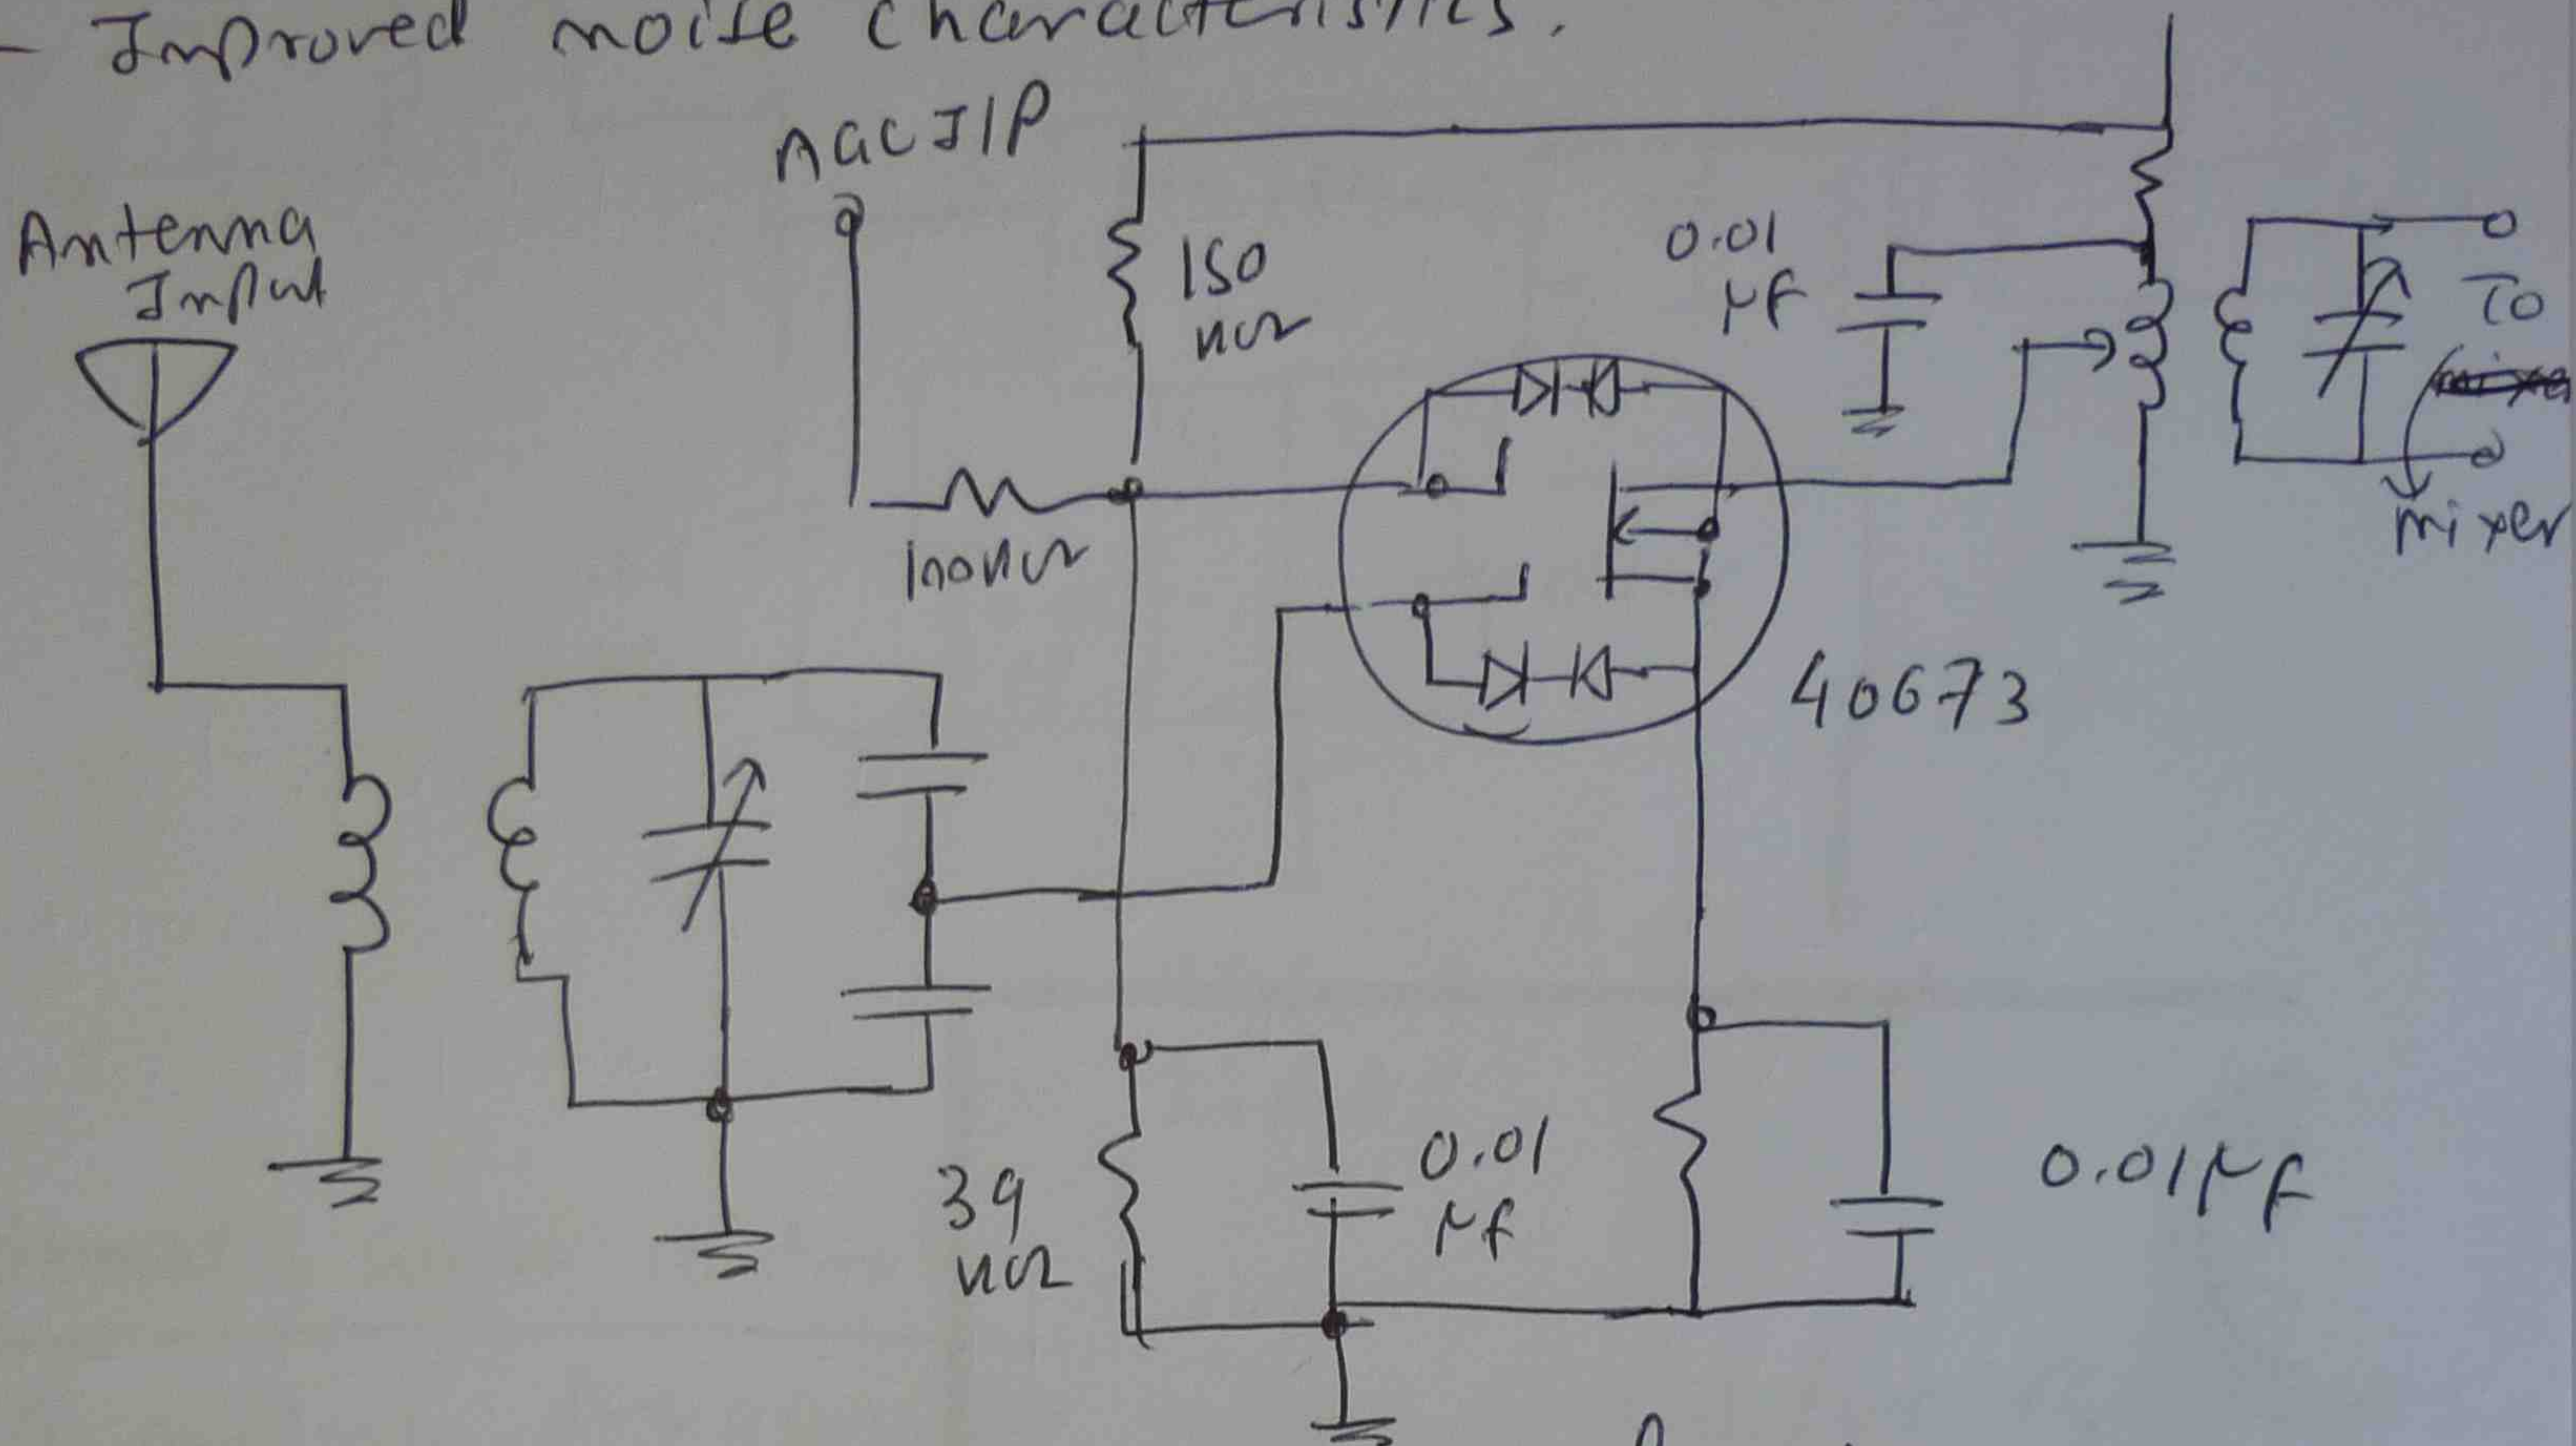 - Improved noise characteristics.
AGC I/P
Antenna
Input
150
KΩ
0.01
μf
To
mixer
100KΩ
40673
39
KΩ
0.01
μf
0.01μf